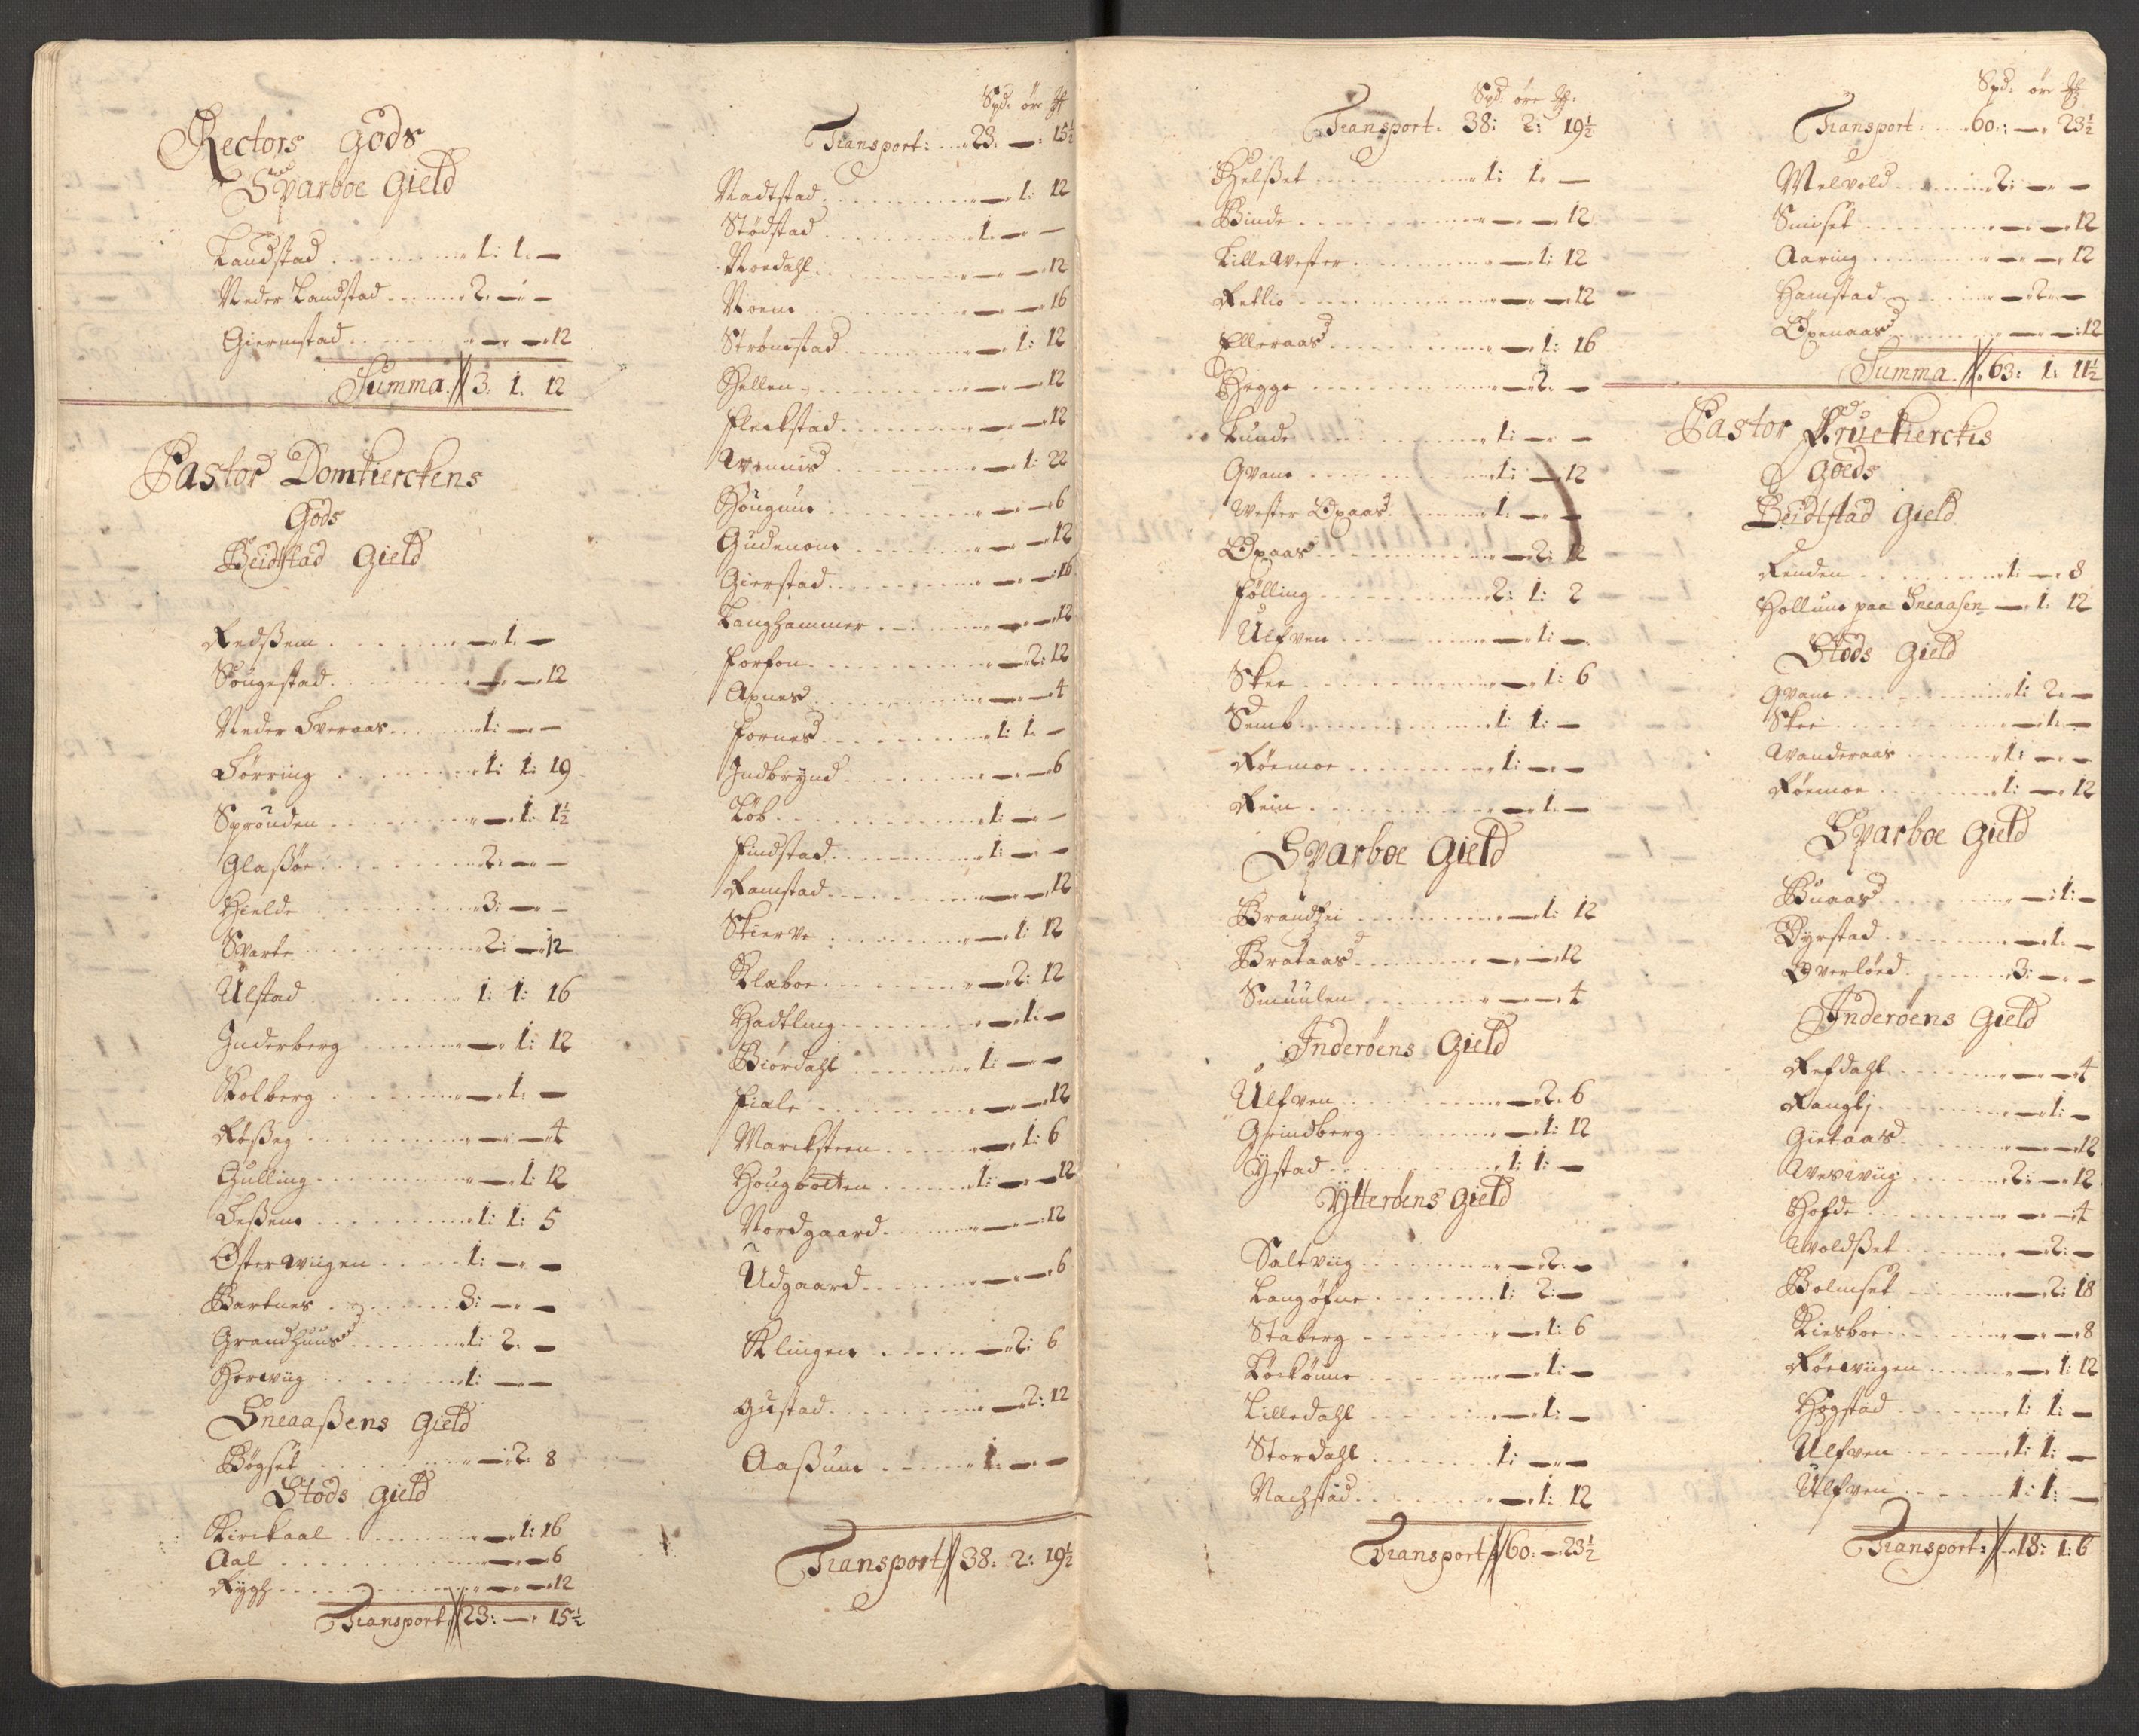 Rectors Gods
Sparboe Gield
Landstad . . . 1: 1. —
Neder Landstad . . . 2. — —
Giermstad . . . — — 12
Summa // 3. 1. 12
Pastor Domkierckens
Gods
Beidstad Gield
Redßem . . . — 1. —
Sougestad . . . — — 12
Neder Tveraas . . . 1: — —
Förring . . . 1: 1: 19
Sprouden . . . — 1: 1½
Glaßöe . . . 2: — —
Hielde . . . 3: — —
Svarte . . . 2: — 12
Ulstad . . . 1: 1: 16
Inderberg . . . — 1: 12
Kolberg . . . — 1. —
Rößeg . . . — — 4
Gulling . . . — 1: 12
Leßem . . . 1: 1: 5
Österwiigen . . . 1: — —
Bartnes . . . 3: — —
Grandhuus . . . 1: 2. —
Herwiig . . . 1: — —
Sneaaßens Gield
Bögset . . . — 2. 8
Stods Gield
Kirckaal . . . — 1: 16
Aal . . . — — 6
Rygh . . . — — 12
Transport // 23: — 15½
Spd. öre
Transport: . . . 23. —: 15½
Nadtstad . . . — 1: 12
Stödstad . . . 1. — —
Noedahl . . . — — 12
Noem . . . — — 16
Strömstad . . . — 1: 12
Hellem . . . — — 12
Fleckstad . . . — — 12
Wennis . . . — 1: 22
Hougum . . . — — 6
Gudenom . . . — — 12
Gierstad . . . — — 16
Langhammer . . . — — 12
Forfon . . . — 2: 12
Apnes . . . — — 4
Fornes . . . 1: 1. —
Indbrynd . . . — — 6
Löb . . . 1: — —
Findstad . . . 1: — —
Ramstad . . . — — 12
Skierve . . . — 1: 12
Klaboe . . . — 2: 12
Hadtling . . . — 1: —
Biördahl . . . 1: — —
Fiale . . . — — 12
Marcksteen . . . — 1: 6
Hougbolten . . . 1: — 12
Nordgaard . . . — — 12
Udgaard . . . — — 6
Klingen . . . — 2: 6
Gustad . . . — 2: 12
Aaßum . . . 1. — —
Transport // 38: 2: 19½
Spd: öre
Transport. 38: 2: 19½
Helßet . . . 1: 1. —
Binde . . . — — 12
Lille Wester . . . — 1: 12
Retlio . . . — — 12
Elleraas . . . — 1: 16
Hegge . . . — 2. —
Lunde . . . 1: — —
Qvam . . . 1: — 12
Wester Opaas . . . 1. — —
Opaas . . . — 2: 12
Fölling . . . 2: 1: 2
Ulfven . . . — 1: —
Skee . . . — 1: 6
Semb . . . 1: 1: —
Röemoe . . . 1: — —
Rein . . . — 1. —
Sparboe Gield
Brandhei . . . — 1: 12
Brataas . . . — — 12
Smuulen . . . — — 4
Inderöens Gield
Ulfven . . . — 2. 6
Grindberg . . . — 1: 12
Ystad . . . 1: 1: —
Ytteröens Gield
Saltviig . . . — 2. —
Langöfne . . . 1: 2: —
Staberg . . . — 1: 6
Löckönne . . . — 1: —
Lilledahl . . . — 1: —
Stordahl . . . 1: — —
Nachstad . . . — 1: 12
Transport // 60: — 23½
Spd: öre
Transport: . . . 60: — 23½
Melvold . . . 2: — —
Smiset . . . — — 12
Aaring . . . — — 12
Hamstad . . . — 2 —
Openaas . . . — — 12
Summa. // 63: 1: 11½
Pastor Fruekierckes
Goeds
Beidtstad Gield
Renden . . . 1: — 8
Hollum paa Sneaasen — 1: 12
Stods Gield
Qvam . . . 1: 2. —
Skee . . . — 1. —
Wanderaas . . . 1: — —
Röemoe . . . 1: — 12
Sparboe Gield
Buaas . . . — 1: —
Dyrstad . . . — 1. —
Overlöed . . . 3: — —
Inderöens Gield
Refdahl . . . — — 4
Rangly . . . — 1: —
Gietaas . . . — — 12
Weswiig . . . 2: — 12
Hofde . . . — — 4
Woldßet . . . — 2: —
Bolmset . . . — 2: 18
Kiesboe . . . — — 8
Röewiigen . . . — 1: 12
Hogstad . . . 1: 1: —
Ulfven . . . 1: 1: —
Ulfven . . . 1: 1: —
Transport: // 18: 1: 6